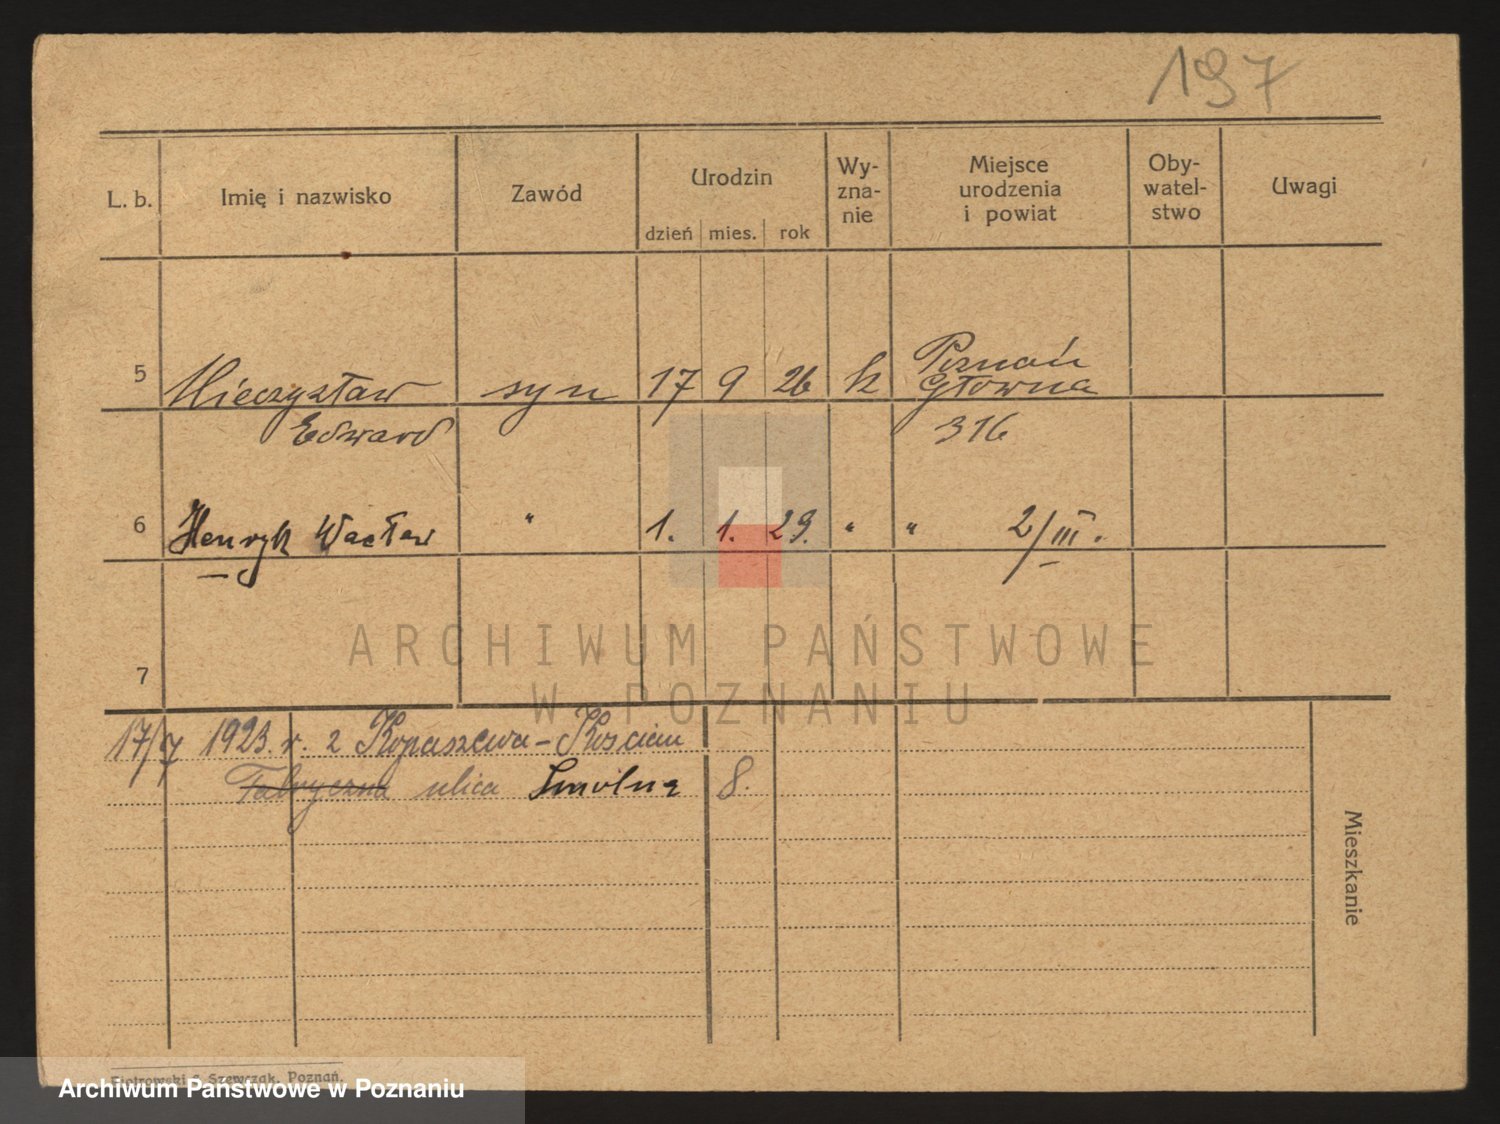 197
L. b. Imię i nazwisko Zawód Urodzin dzień mies. rok Wy-zna-nie Miejsce urodzenia i powiat Oby-watel-stwo Uwagi
5 Mieczysław syn 17 9 26 k Poznań Główna
Edward 316
6 Henryk Wacław " 1. 1. 29. " " 2/III.
7
ARCHIWUM PAŃSTWOWE
W POZNANIU
17/7 1923. r. z Kopaszewa-Kościan
Fabryczna ulica Smolna 8.
Mieszkanie
Piotrowski & Szewczak, Poznań.
Archiwum Państwowe w Poznaniu